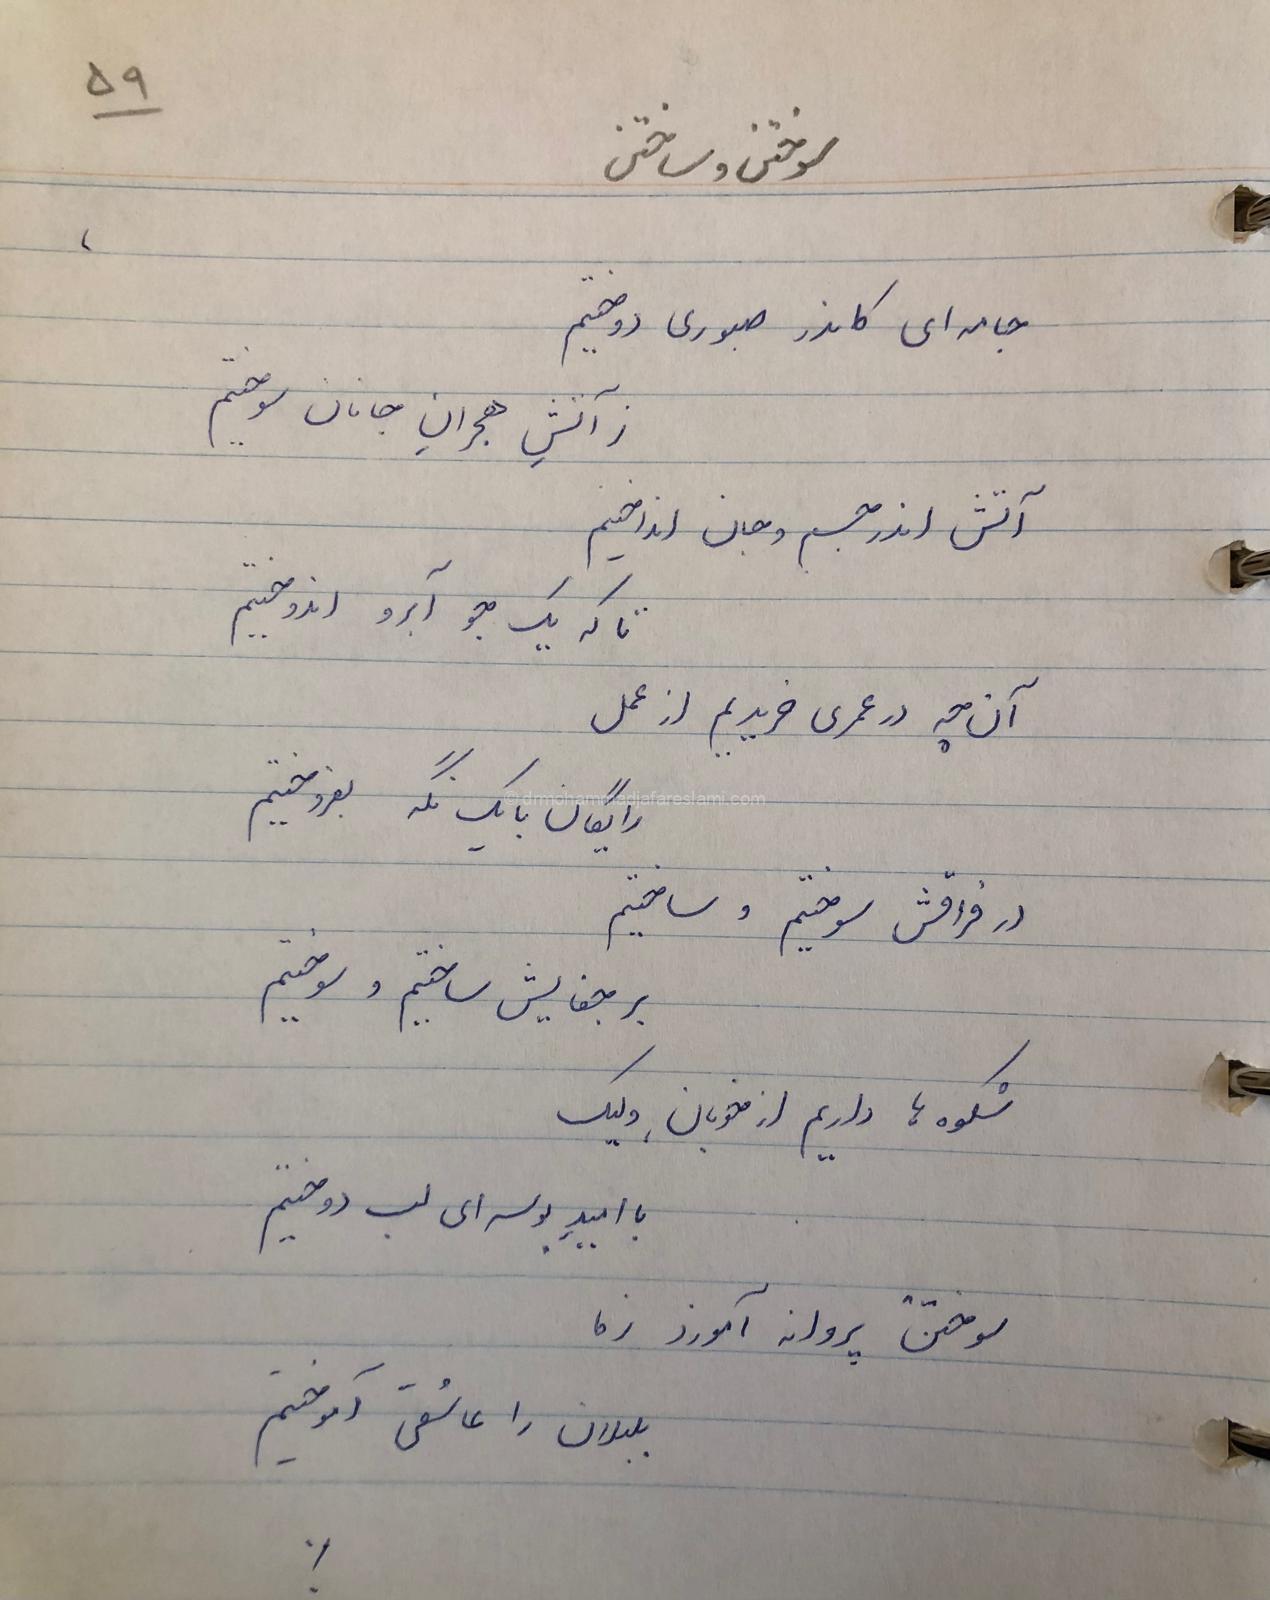 ۵۹
سوختن و ساختن
جامه‌ای کاندر صبوری دوختیم
ز آتشِ هجرانِ جانان سوختیم
آتش اندر جسم و جان انداختیم
تا که یک جو آبرو اندوختیم
آن چه در عمری خریدیم از عمل
رایگان با یک نگه بفروختیم
در فراقش سوختیم و ساختیم
بر جفایش ساختیم و سوختیم
شکوه ها داریم از خوبان، ولیک
با امیدِ بوسه ای لب دوختیم
سوختن پروانه آموزد ز ما
بلبلان را عاشقی آموختیم
© drmohammedjafareslami.com